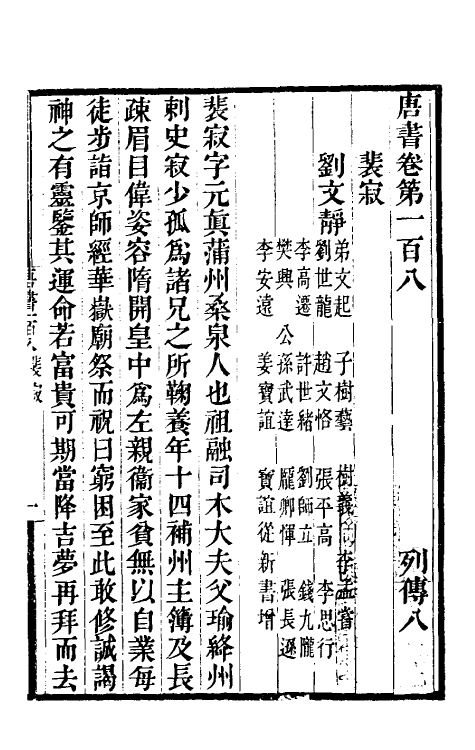 唐書卷第一百八 列傳八
裴寂
劉文靜 弟文起 子樹藝 樹義 李孟嘗
劉世龍 趙文恪 張平高 李思行
李高遷 許世緒 劉師立 錢九隴
樊興 公孫武達 龐卿惲 張長遜
李安遠 姜寶誼 寶誼從新書增
裴寂字元真蒲州桑泉人也祖融司木大夫父瑜絳州
刺史寂少孤爲諸兄之所鞠養年十四補州主簿及長
疎眉目偉姿容隋開皇中爲左親衞家貧無以自業每
徒步詣京師經華嶽廟祭而祝曰窮困至此敢修誠謁
神之有靈鑒其運命若富貴可期當降吉夢再拜而去
唐書一百八 裴寂 一